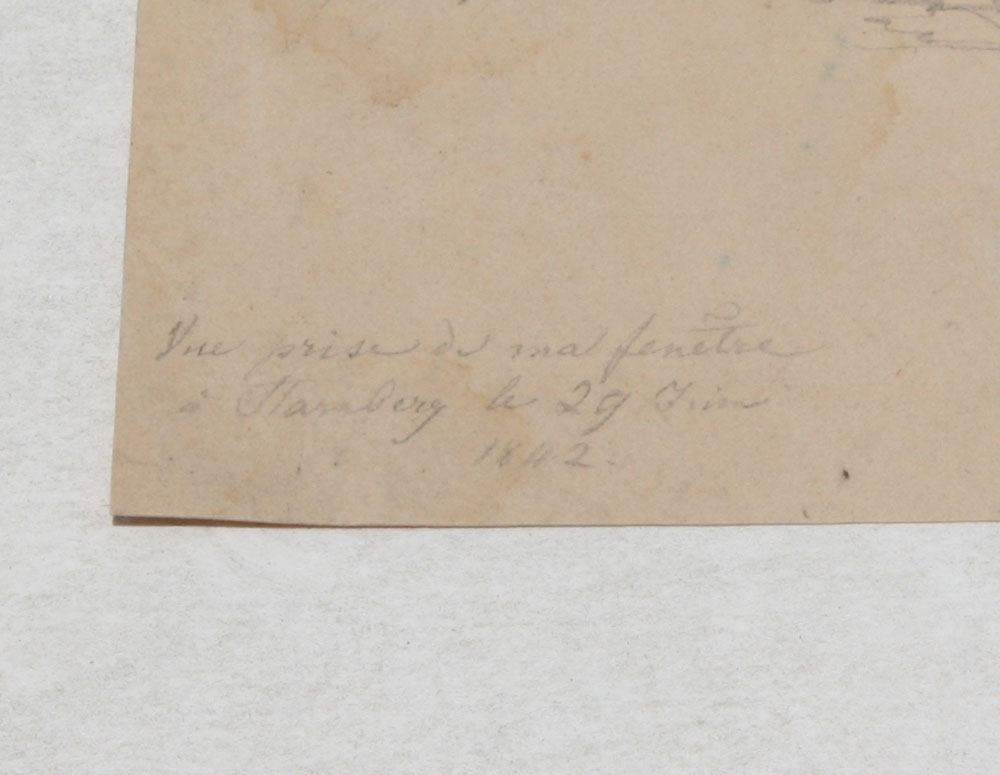 Vue prise de ma fenêtre
à Starnberg le 29 Juin
1842.